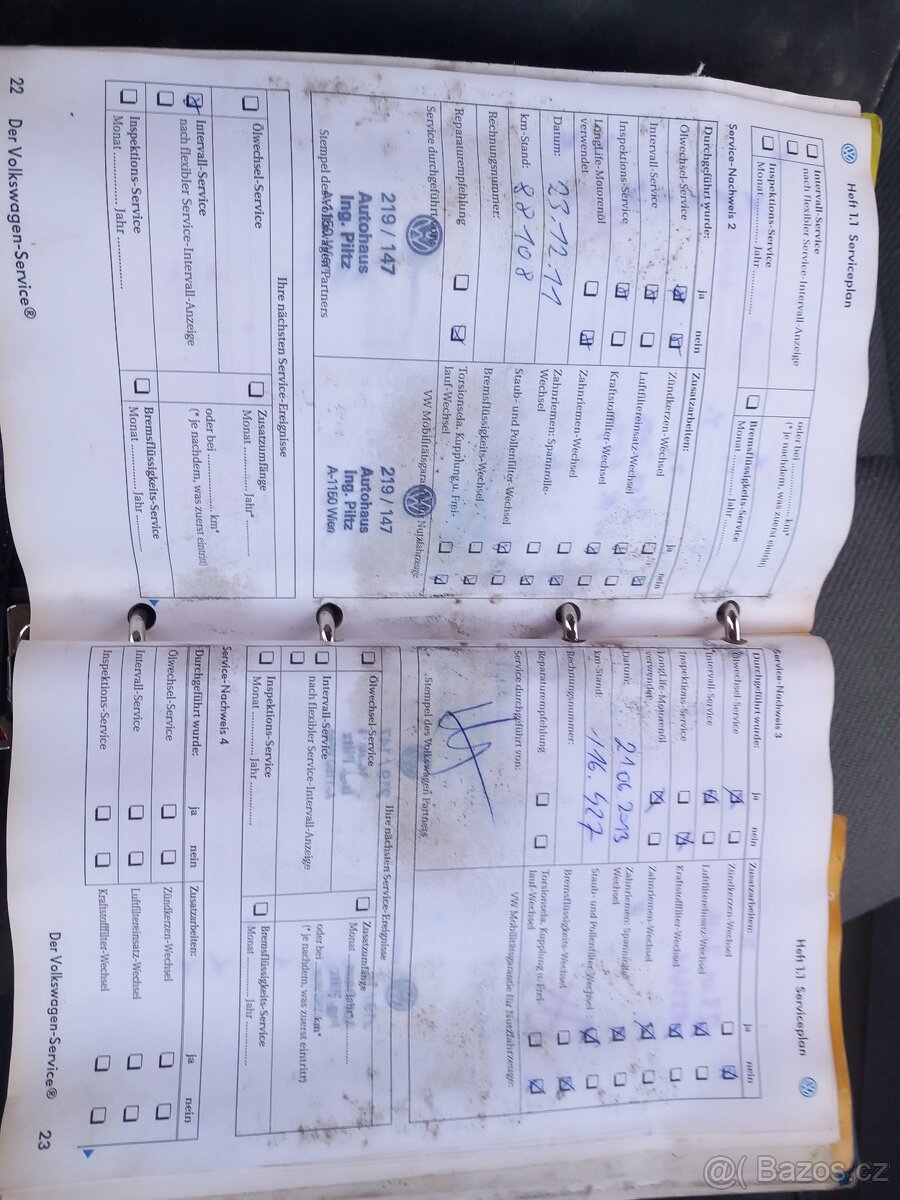 Heft 1.1 Serviceplan
Intervall-Service
nach flexibler Service-Intervall-Anzeige
Inspektions-Service
Monat ............ Jahr ............
oder bei ............ km*
(* je nachdem, was zuerst eintritt)
Bremsflüssigkeits-Service
Monat ............ Jahr ............
Service-Nachweis 2
Durchgeführt wurde: ja nein
Ölwechsel-Service
Intervall-Service
Inspektions-Service
LongLife-Motorenöl
verwendet
Datum: 23.12.11
km-Stand: 88108
Rechnungsnummer:
Reparaturempfehlung
Service durchgeführt
219 / 147
Autohaus
Ing. Piltz
A-1150 Wien
Zusatzarbeiten: ja nein
Zündkerzen-Wechsel
Luftfiltereinsatz-Wechsel
Kraftstofffilter-Wechsel
Zahnriemen-Wechsel
Zahnriemen: Spannrolle-
Wechsel
Staub- und Pollenfilter-Wechsel
Bremsflüssigkeits-Wechsel
Torsionsela. Kupplung u. Frei-
lauf-Wechsel
VW Mobilitätsgarantie Nutzfahrzeuge
219 / 147
Autohaus
Ing. Piltz
A-1150 Wien
Ihre nächsten Service-Ereignisse
Ölwechsel-Service
Intervall-Service
nach flexibler Service-Intervall-Anzeige
Inspektions-Service
Monat ............ Jahr ............
Zusatzumfänge
Monat ............ Jahr* ............
oder bei ............ km*
(* je nachdem, was zuerst eintritt)
Bremsflüssigkeits-Service
Monat ............ Jahr ............
22 Der Volkswagen-Service®
Heft 1.1 Serviceplan
Service-Nachweis 3
Durchgeführt wurde: ja nein
Ölwechsel-Service
Intervall-Service
Inspektions-Service
LongLife-Motorenöl
verwendet
Datum: 21 06 2013
km-Stand: 116.427
Rechnungsnummer:
Reparaturempfehlung
Service durchgeführt von:
Stempel des Volkswagen Partners
Zusatzarbeiten: ja nein
Zündkerzen-Wechsel
Luftfiltereinsatz-Wechsel
Kraftstofffilter-Wechsel
Zahnriemen-Wechsel
Zahnriemen: Spannrolle-
Wechsel
Staub- und Pollenfilter-Wechsel
Bremsflüssigkeits-Wechsel
Torsionsela. Kupplung u. Frei-
lauf-Wechsel
VW Mobilitätsgarantie für Nutzfahrzeuge:
Ihre nächsten Service-Ereignisse
Ölwechsel-Service
Intervall-Service
nach flexibler Service-Intervall-Anzeige
Inspektions-Service
Monat ............ Jahr ............
Zusatzumfänge
Monat ............ Jahr* ............
oder bei ............ km*
(* je nachdem, was zuerst eintritt)
Bremsflüssigkeits-Service
Monat ............ Jahr ............
Service-Nachweis 4
Durchgeführt wurde: ja nein
Ölwechsel-Service
Intervall-Service
Inspektions-Service
Zusatzarbeiten: ja nein
Zündkerzen-Wechsel
Luftfiltereinsatz-Wechsel
Kraftstofffilter-Wechsel
Der Volkswagen-Service® 23
@( Bazos.cz